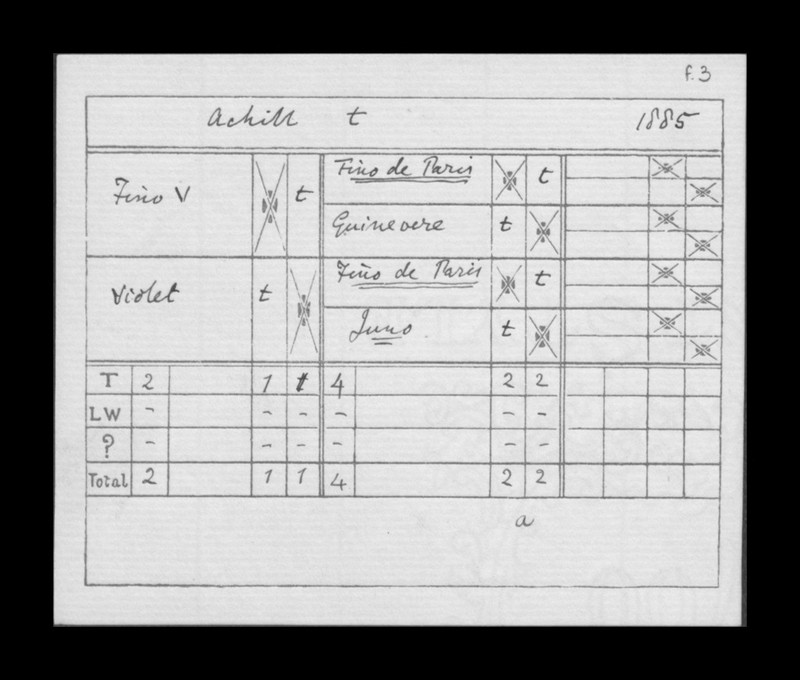 f.3
Achill t 1885
Fino V t
Fino de Paris t
Guinevere t
Violet t
Fino de Paris t
Juno t
T 2 1 1 4 2 2
LW - - - - - -
? - - - - - -
Total 2 1 1 4 2 2
a